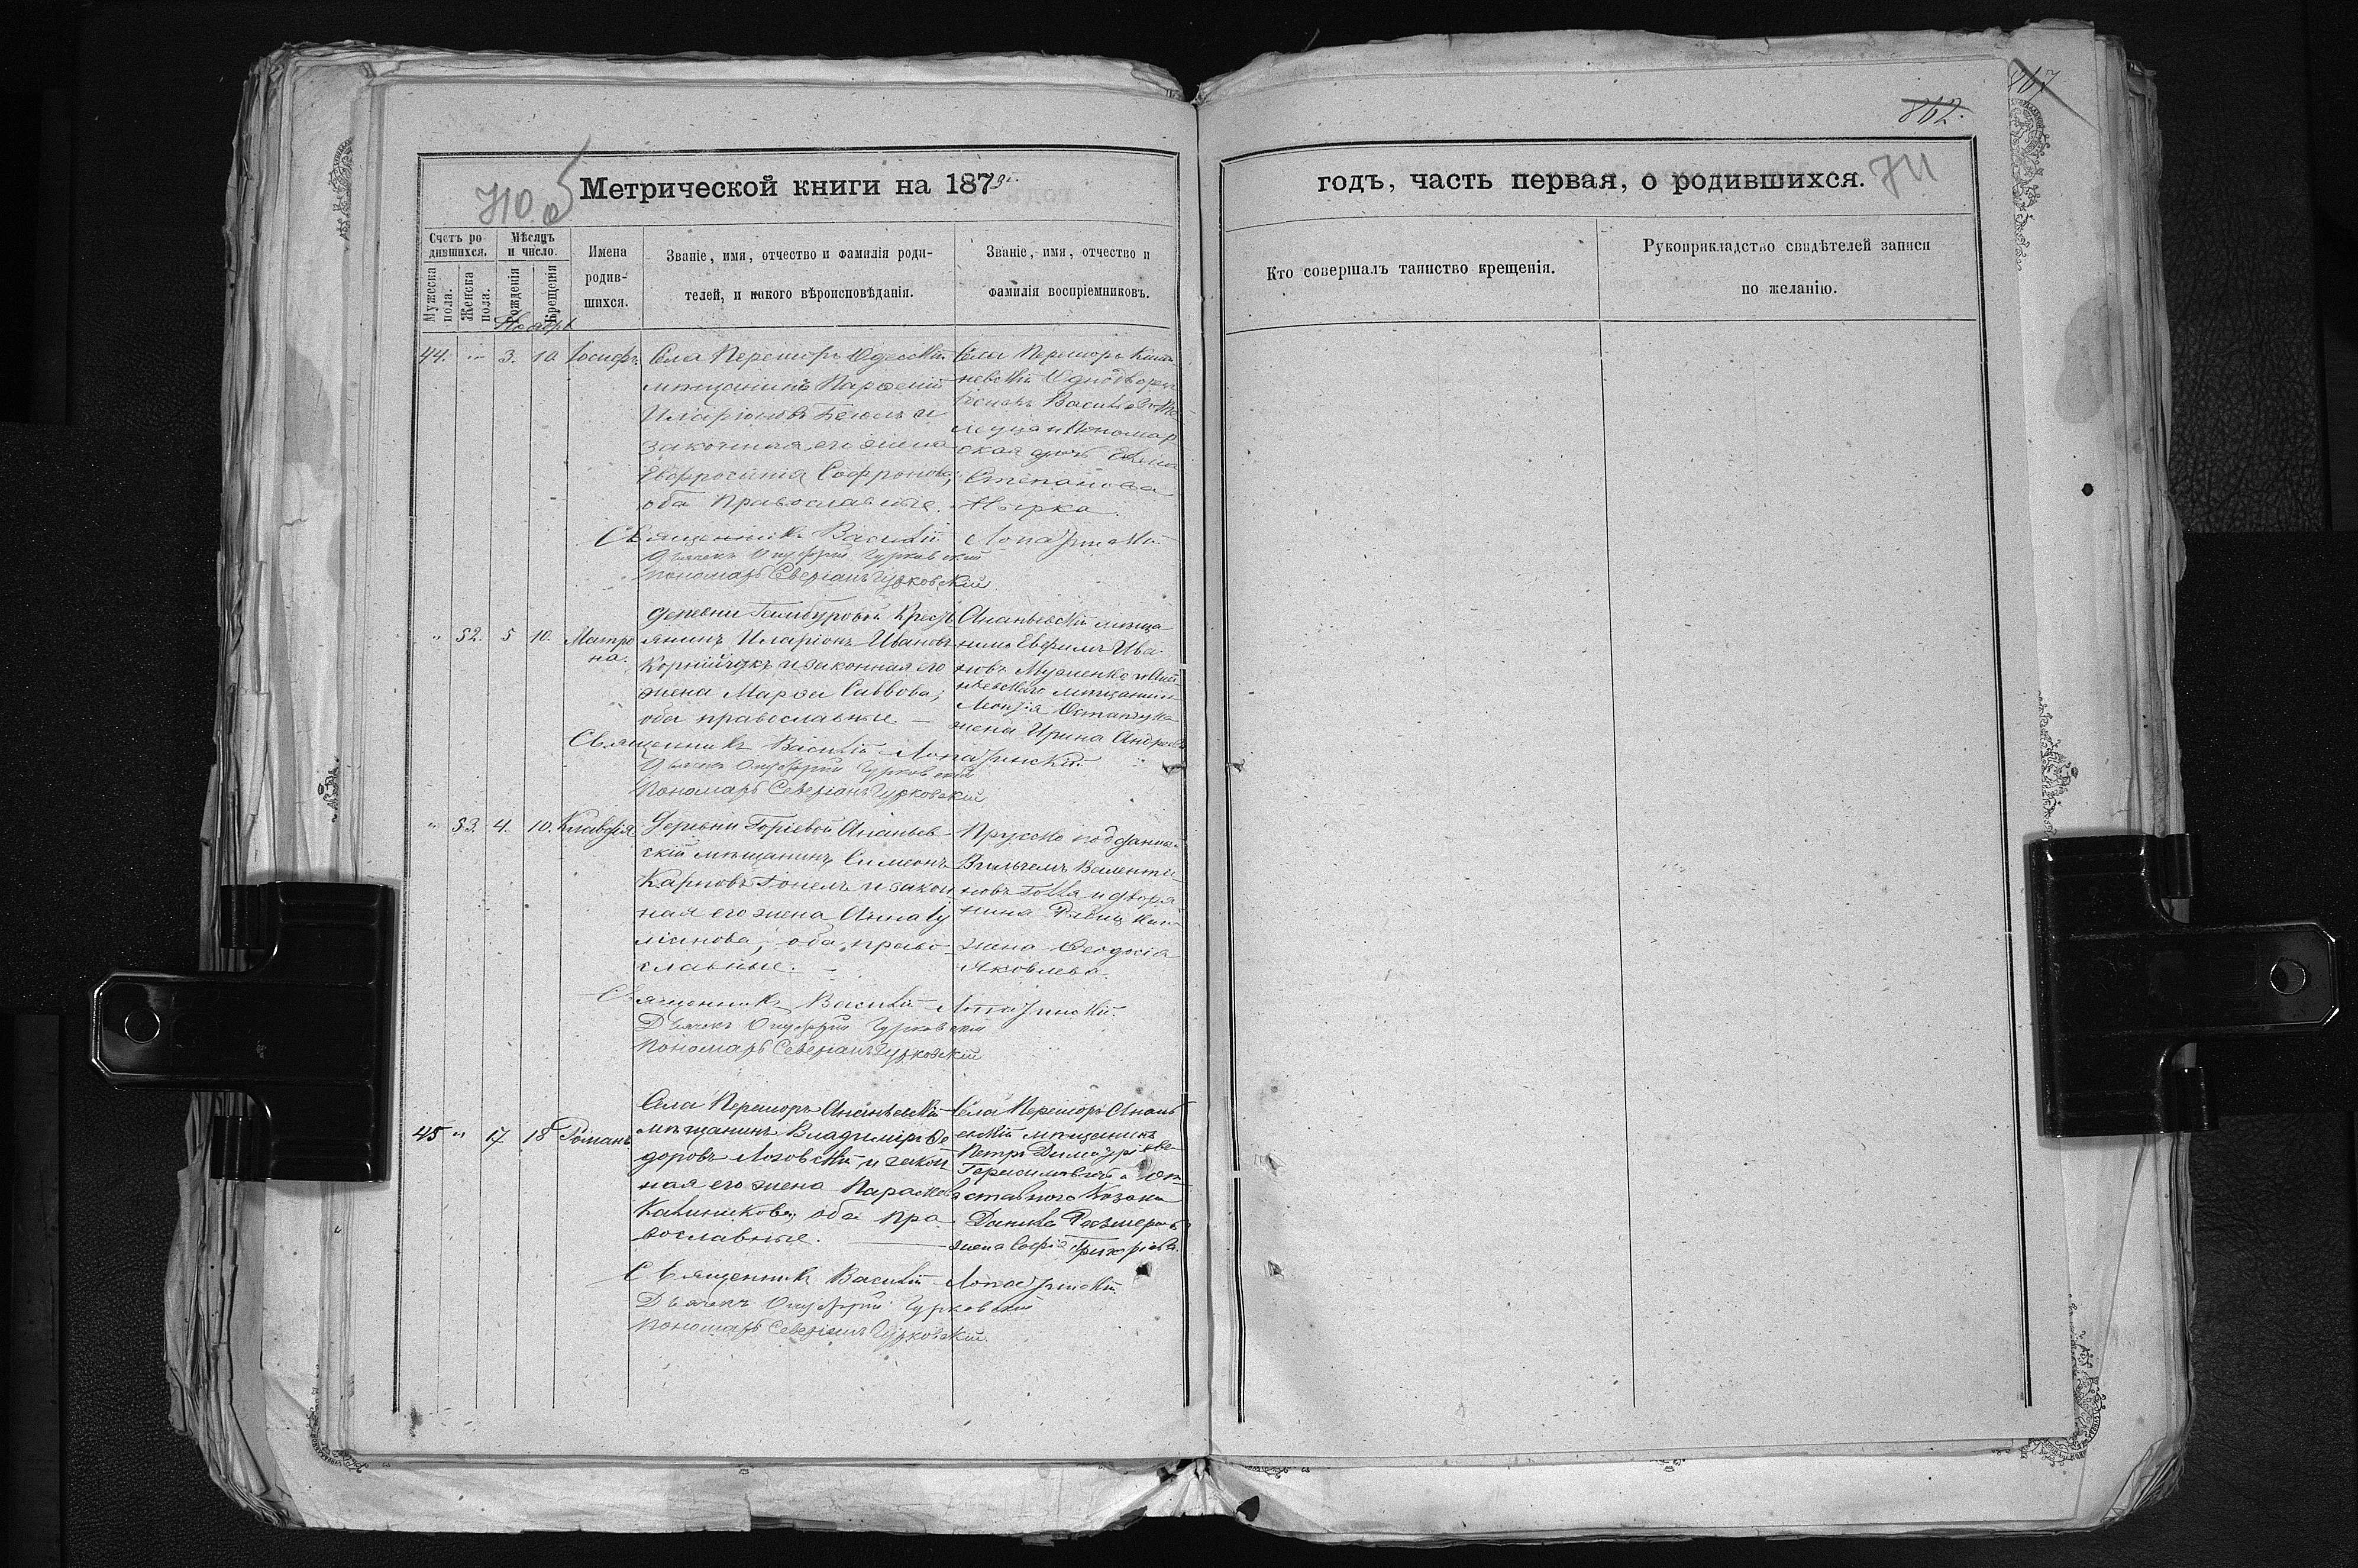 862.
710 об
Метрической книги на 1879 г.
годъ, часть первая, о родившихся. 711
Счетъ ро-
дившихся.
Мужеска пола.
Женска пола.
Мѣсяцъ
и число.
Рожденія
Крещенія
Имена
родив-
шихся.
Званіе, имя, отчество и фамилія роди-
телей, и какого вѣроисповѣданія.
Званіе, имя, отчество и
фамилія воспріемниковъ.
Кто совершалъ таинство крещенія.
Рукоприкладство свидѣтелей записи
по желанію.
Ноябрь
44. " 3. 10. Іосифъ.
Села Перешоръ Одесскій
мѣщанинъ Парѳеній
Иларіоновъ и
законная его жена
Евфросинія Софронова;
оба Православные.
Села Перешоръ
Одноворецъ
Василіевъ
и Пономар
ская дочь
Степанова
Нырка.
Священникъ Василій Лопатинскій
Дьячекъ Онуфрій Гурковскій
Пономарь Северіанъ Гурковскій
" 52. 5 10. Матро
на.
Деревни Гамбуровой Крест
янинъ Иларіонъ Ивановъ
Корнійчукъ и законная его
жена Марѳа Саввова;
оба православные —
Ананьевскій мѣща
нинъ Евфимъ Ива
новъ
мѣщанина
жена Ирина Андреева
Священникъ Василій Лопатинскій
Дьячекъ Онуфрій Гурковскій
Пономарь Северіанъ Гурковскій
" 53. 4. 10. Клавдія
Деревни Горіевой Ананьев-
скій мѣщанинъ Симеонъ
Карповъ и закон
ная его жена Анна
оба право-
славные. —
Прусско подданный
Вильгелмъ Валенти-
новъ и дворя
нина
жена Ѳеодосія
Яковлева.
Священникъ Василій Лопатинскій
Дьячекъ Онуфрій Гурковскій
Пономарь Северіанъ Гурковскій
45 " 17 18 Романъ
Села Перешоръ Ананьевскій
мѣщанинъ Владиміръ Ѳе
доровъ Лозовскій и закон
ная его жена Параскева
Калиникова, оба пра-
вославные. —
Села Перешоръ Ананьев
скій мѣщанинъ
Петръ Димитріевъ
и От
ставного Козака
Данила
жена Софія Григоріева.
Священникъ Василій Лопатинскій
Дьячекъ Онуфрій Гурковскій
Пономарь Северіанъ Гурковскій